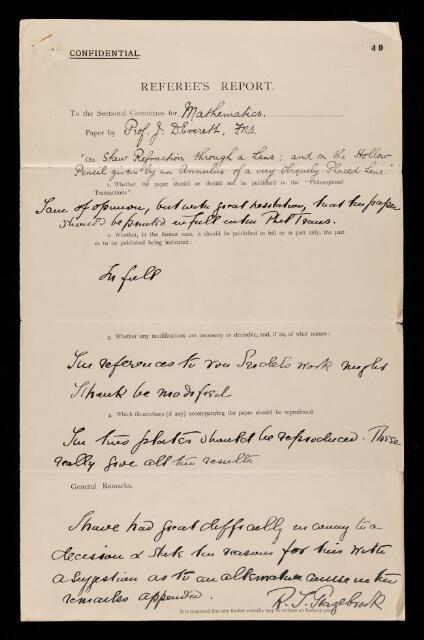 CONFIDENTIAL.
49
REFEREE'S REPORT.
To the Sectional Committee for Mathematics.
Paper by Prof. J. D. Everett, F.R.S.
"On Skew Refraction through a Lens; and on the Hollow
Pencil given by an Annulus of a very Obliquely Placed Lens."
1. Whether the paper should or should not be published in the "Philosophical
Transactions":
I am of opinion, but with great hesitation, that the paper
should be printed in full in the Phil Trans.
2. Whether, in the former case, it should be published in full or in part only, the part
or to be published being indicated:
In full
3. Whether any modifications are necessary or desirable, and, if so, of what nature:
The references to von Seidel's work might
I think be modified
4. Which illustrations (if any) accompanying the paper should be reproduced
The two plates should be reproduced. These
really give all the results
General Remarks.
I have had great difficulty in coming to a
decision & state the reasons for this with
a suggestion as to an alternative course in the
remarks appended.
R. T. Glazebrook
It is requested that any further remarks may be written on